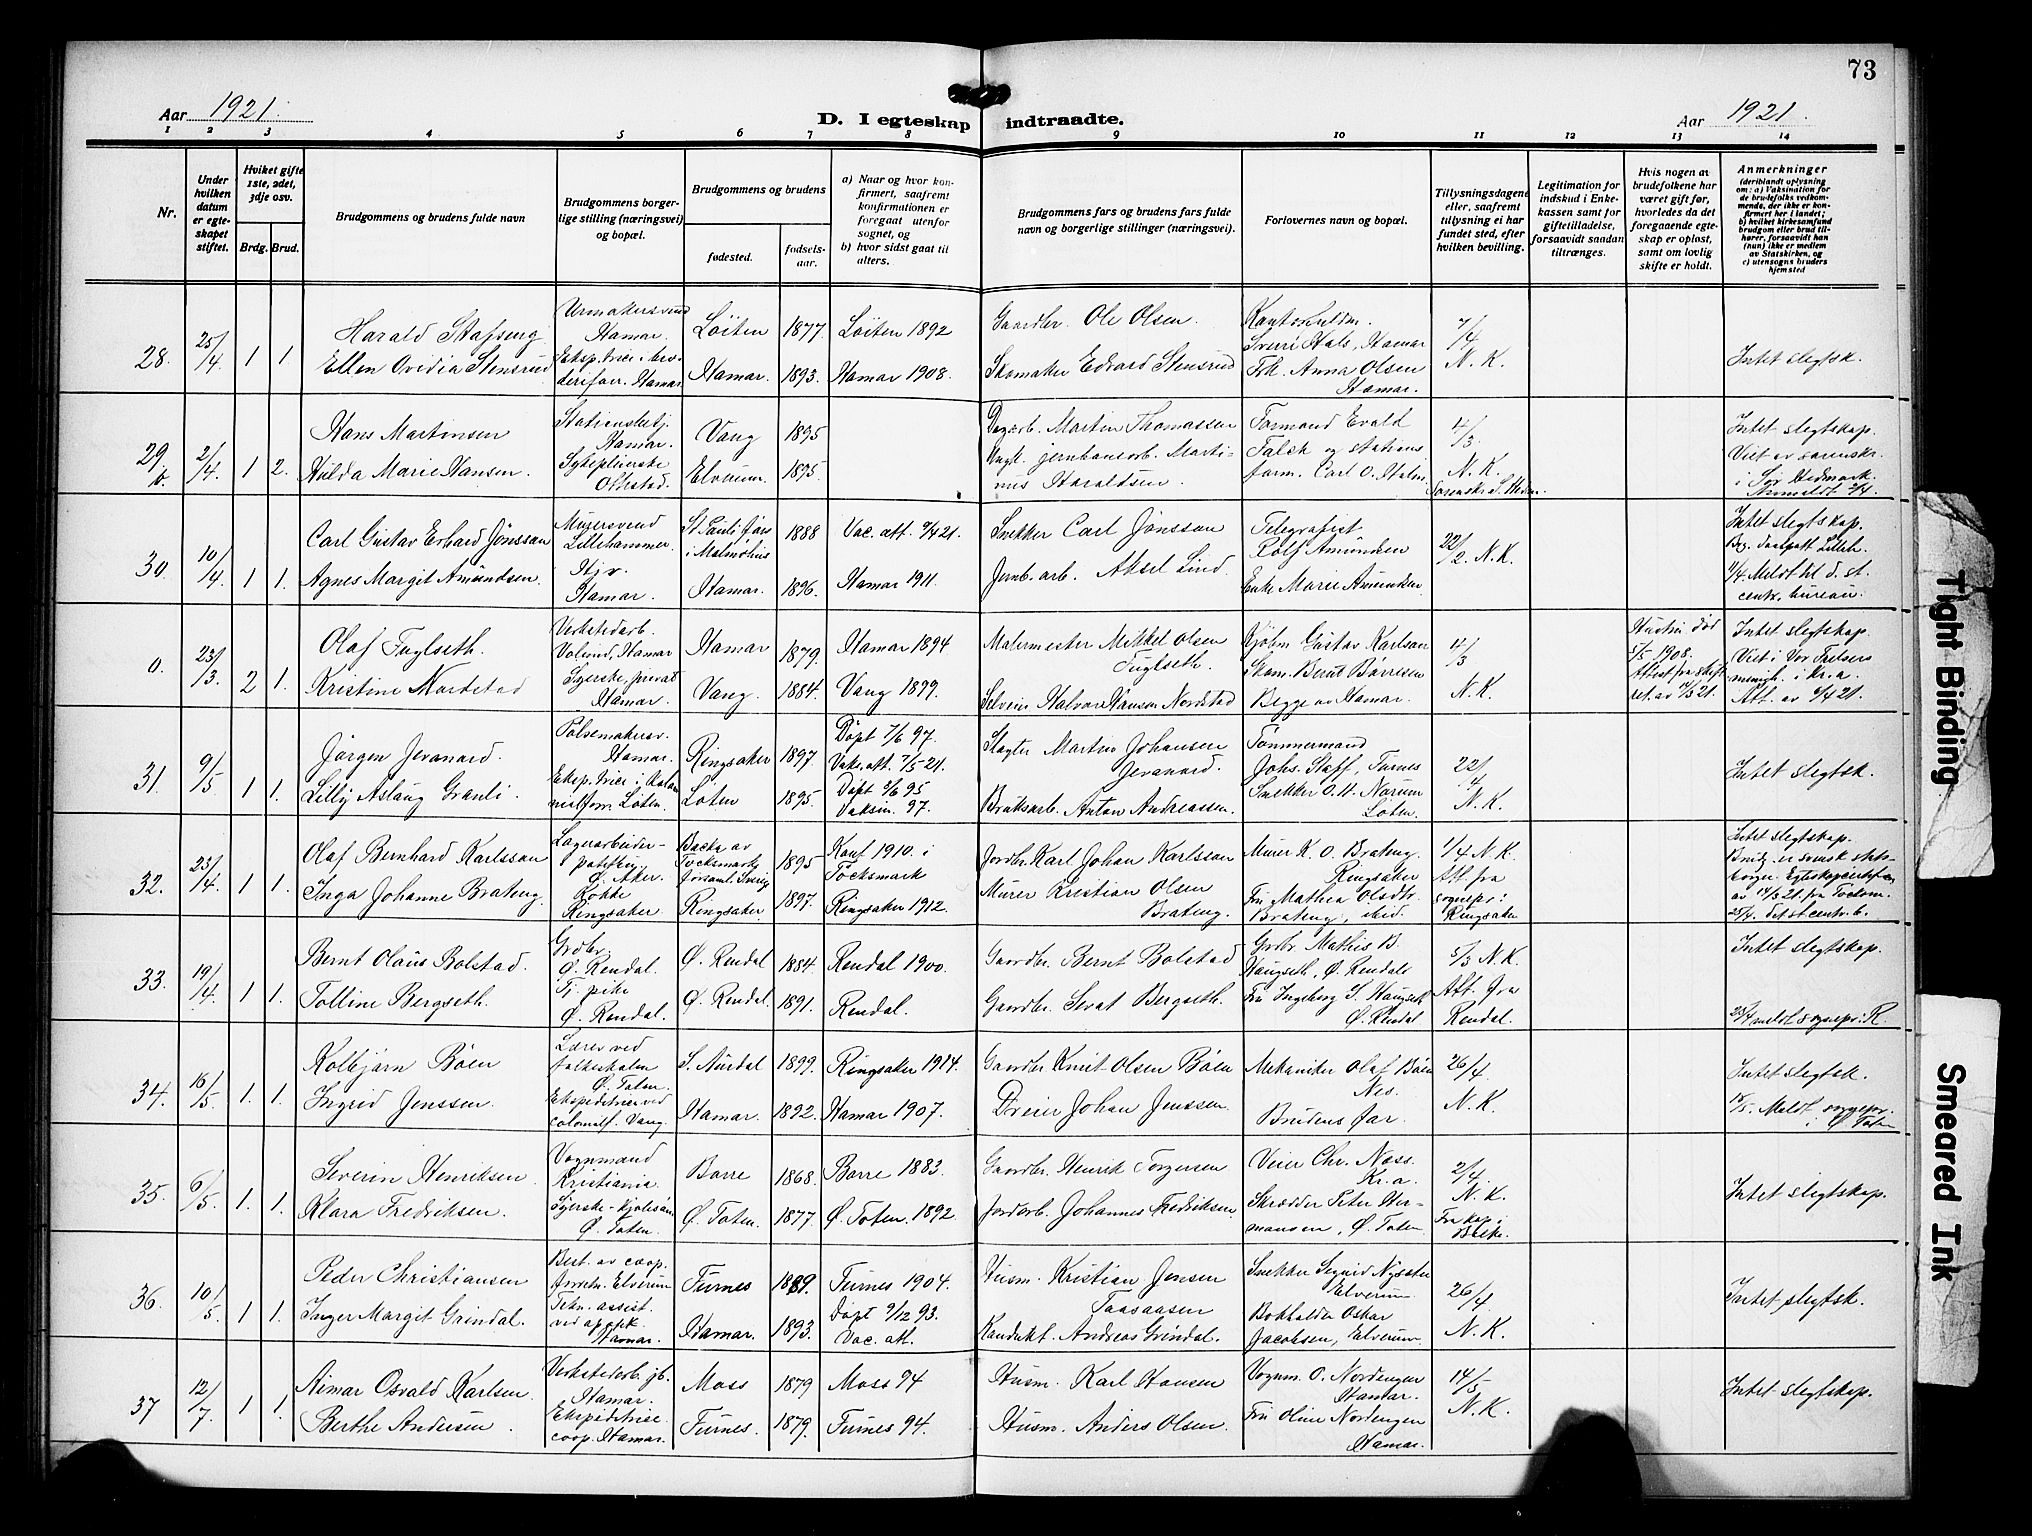 73
Aar 1921.
D. I egteskap indtraadte.
Aar 1921.
1 2 3 4 5 6 7 8 9 10 11 12 13 14
Nr.
Under hvilken datum er egteskapet stiftet.
Hvilket gifte 1ste, 2det, 3dje osv.
Brdg. Brud.
Brudgommens og brudens fulde navn
Brudgommens borgerlige stilling (næringsvei) og bopæl.
Brudgommens og brudens
fødested.
fødselsaar.
a) Naar og hvor konfirmert, saafremt konfirmationen er foregaat utenfor sognet, og
b) hvor sidst gaat til alters.
Brudgommens fars og brudens fars fulde navn og borgerlige stillinger (næringsvei).
Forlovernes navn og bopæl.
Tillysningsdagene eller, saafremt tillysning ei har fundet sted, efter hvilken bevilling.
Legitimation for indskud i Enkekassen samt for giftetilladelse, forsaavidt saadan tiltrænges.
Hvis nogen av brudefolkene har været gift før, hvorledes da det foregaaende egteskap er opløst, samt om lovlig skifte er holdt.
Anmerkninger
(deriblandt oplysning om: a) Vaksination for de brudefolks vedkommende, der ikke er konfirmert her i landet; b) hvilket kirkesamfund brudgom eller brud tilhører, forsaavidt han (hun) ikke er medlem av Statskirken, og c) utensogns bruders hjemsted
28. 25/4 1 1
Harald Stafseng
Ellen Ovidia Stensrud
Urmakersvend
Hamar.
Hamar
Løiten 1877. Løiten 1892
Hamar. 1893. Hamar 1908.
Gaardbr. Ole Olsen.
Skomaker Edvard Stensrud
Sverri Hals, Hamar
Frk. Anna Olsen
Hamar.
7/4
N. K.
Intet slegtsk.
29 b. 2/4 1 2.
Hans Martinsen
Hilda Marie Hansen.
Stationsbetj.
Hamar.
Sykepleierske
Ottestad.
Vang 1895
Elverum. 1895.
Dagarb. Martin Thomassen
Ungk. jernbanearb. Martinius Haraldsen.
Formand Evald
Falck og stations
form. Carl O. Holm
4/3.
N. K.
Sorenskr. S. Hedm.
Intet slegtskap.
Viet av sorenskr.
i Sør Hedmark.
Anmeldt 2/4.
30. 10/4 1 1.
Carl Gustav Erhard Jønsson
Agnes Margit Amundsen.
Murersvend
Lillehammer.
Hjv.
Hamar.
St. Pauli førs.
i Malmøhus 1888 Vac. att. 9/4 21.
Hamar. 1896. Hamar 1911.
Snekker Carl Jønsson
Jernb. arb. Aksel Lind.
Telegrafist
Rolf Amundsen
Enke Marie Amundsen
22/2. N. K.
Intet slegtskap.
Bg. daatatt. Lilleh.
11/4. Meldt til d. st.
centr. bureau.
0. 23/3. 2 1.
Olaf Fuglseth.
Kristine Nordstad
Verkstedarb.
Volund, Hamar
Syerske, privat
Hamar.
Hamar 1879. Hamar 1894
Vang. 1884. Vang 1899.
Malermester Mikkel Olsen
Fuglseth.
Selveier Halvor Hansen Nordstad
Kjøbm. Gustav Karlsen
Skom. Bernt Børresen
Begge av Hamar.
4/3
N. K.
Hustru død
5/5 1908.
Attest fra skifteret. av 11/3 21.
Intet slegtskap.
Viet i Vor Frelsers
menigh. i Kr.a.
Att. av 4/4 21.
31. 9/5 1 1.
Jørgen Jevanord.
Lilly Aslaug Granli.
Pølsemakersv.
Hamar.
Eksp. trice i kolonialforr. Løten.
Ringsaker 1897. Døpt 7/6 97.
Vaks. att. 7/5-21.
Løten 1895. Døpt 9/6 95
Vaksin. 97.
Slagter Martin Johansen
Jevanord.
Bruksarb. Anton Andreassen.
Tømmermand
Johs. Staff, Furnes
Snekker O. H. Norum
Løten.
22/4.
N. K.
Intet slegtsk.
32. 23/4 1 1.
Olaf Bernhard Karlsson
Inga Johanne Brateng.
Lagerarbeider
Ø. Aker.
Kokke
Ringsaker
Backa av
Töcksmarks
församl. Sverige 1895 Konf 1910. i
Töcksmark
Ringsaker. 1897. Ringsaker 1912.
Jordbr. Karl Johan Karlsson
Murer Kristian Olsen
Brateng.
Murer K. O. Brateng.
Ringsaker
Fru Mathea Olsdtr.
Brateng, ibid.
1/4 N. K.
Att. fra
sognepr:
Ringsaker
Intet slegtskap.
Brudg. er svensk statsborger. Egteskapscertif.
av 14/3 21. fra Töcksm.
25/4. det st. centr. b.
33. 19/4 1 1.
Bernt Olaus Bolstad.
Tolline Bergseth.
Grdbr.
Ø. Rendal.
Tj. pike
Ø. Rendal.
Ø. Rendal 1884. Rendal 1900.
Ø. Rendal. 1891. Rendal.
Gaardbr. Bernt Bolstad
Gaardbr. Sivat Bergseth.
Grdbr. Mathis B.
Haugseth, Ø. Rendale
Fru Ingeborg S. Haugseth
Ø. Rendal
5/3 N. K.
Att. fra
Rendal.
Intet slegtskap.
23/4 meldt sognepr: R.
34. 16/5. 1. 1.
Kolbjørn Bøen
Ingrid Jenssen.
Lærer ved
folkeskolen
Ø. Toten.
Ekspeditrice ved
colonialf. Vang.
S. Aurdal 1899. Ringsaker 1914.
Hamar. 1892. Hamar 1907.
Gaardbr. Knut Olsen Bøen
Dreier Johan Jenssen.
Mekaniker Olaf Bøen
Nes.
Brudens far.
26/4.
N. K.
Intet slegtsk.
18/5. Meldt. sognepr.
i Ø Toten
35. 6/5. 1. 1.
Severin Henriksen.
Klara Fredriksen.
Vognmand
Kristiania.
Syerske - kjolesøm
Ø. Toten.
Borre 1868. Borre 1883.
Ø. Toten. 1877. Ø. Toten. 1892.
Gaardbr. Henrik Torgersen
Jordarb. Johannes Fredriksen.
Veier Chr. Næss.
Kr.a.
Skrædder Peter Hermansen, Ø. Toten.
2/4.
N. K.
Intet slegtskap.
36. 10/5. 1 1.
Peder Christiansen
Inger Margit Grindal.
Best. av coop.
forretn. Elverum
Tekn. assist.
ved apotek
Hamar.
Furnes 1889. Furnes 1904.
Hamar. 1893. Døpt 9/12 93.
Vac. att.
Husm. Kristian Jensen
Taasaasen
Kondukt. Andreas Grindal.
Snekker Sigurd Nysæter
Elverum.
Bokholder Oskar
Jacobsen, Elverum.
26/4.
N. K.
Intet slegtsk.
37 12/7. 1 1.
Aimar Osvald Karlsen.
Berthe Andersen.
Verkstedarb. jb.
Hamar.
Ekspeditrice.
coop. Hamar.
Moss 1879 Moss 94
Furnes. 1879. Furnes 94.
Husm. Karl Hansen
Husm. Anders Olsen.
Vognm. O. Nordengen
Hamar.
Fru Oline Nordengen
Hamar.
14/5
N. K.
Intet slegtskap.
Tight Binding
Smeared Ink